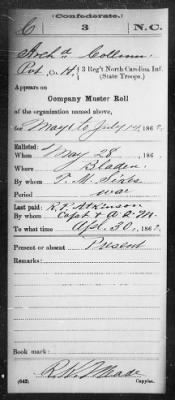 (Confederate.)
C 3 N.C.
Arch'd
Pvt, Co. H, 3 Reg't North Carolina Inf.
(State Troops.)
Appears on
Company Muster Roll
of the organization named above,
for May 1 to July 14, 186
Enlisted:
When May 28, 186
Where Bladen
By whom T. M.
Period war
Last paid:
By whom R. F. Atkinson
Capt & A Q M.
To what time Apl. 30, 186
Present or absent Present
Remarks:
Book mark:
R. W. Meade
(642) Copyist.